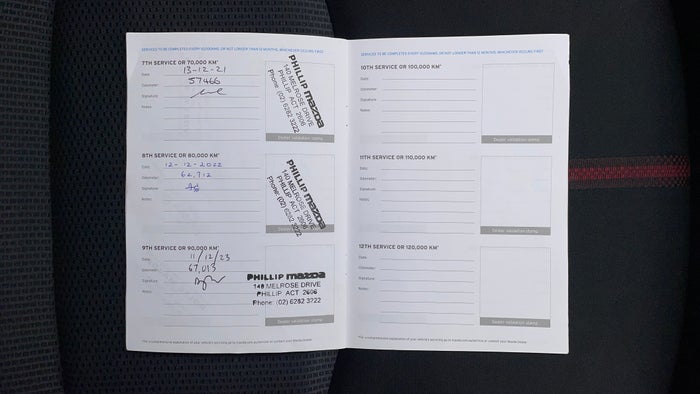 SERVICES TO BE COMPLETED EVERY 10,000KMS, OR NOT LONGER THAN 12 MONTHS, WHICHEVER OCCURS FIRST
7TH SERVICE OR 70,000 KM*
Date: 13-12-21
Odometer: 57466
Signature:
Notes:
PHILLIP mazda
140 MELROSE DRIVE
PHILLIP ACT 2606
Phone: (02) 6282 3222
Dealer validation stamp
8TH SERVICE OR 80,000 KM*
Date: 12-12-2022
Odometer: 62,712
Signature:
Notes:
PHILLIP mazda
140 MELROSE DRIVE
PHILLIP ACT 2606
Phone: (02) 6282 3222
9TH SERVICE OR 90,000 KM*
Date: 11/12/23
Odometer: 67,013
Signature:
Notes:
PHILLIP mazda
140 MELROSE DRIVE
PHILLIP ACT 2606
Phone: (02) 6282 3222
Dealer validation stamp
10TH SERVICE OR 100,000 KM*
Date:
Odometer:
Signature:
Notes:
Dealer validation stamp
11TH SERVICE OR 110,000 KM*
Date:
Odometer:
Signature:
Notes:
Dealer validation stamp
12TH SERVICE OR 120,000 KM*
Date:
Odometer:
Signature:
Notes:
Dealer validation stamp